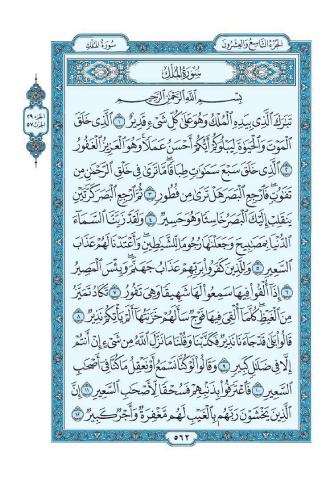 سُورَةُ المُلْكِ الجُزْءُ التَّاسِعُ وَالعِشْرُونَ
سُورَةُ المُلْكِ
بِسْمِ اللَّهِ الرَّحْمَٰنِ الرَّحِيمِ
تَبَٰرَكَ ٱلَّذِى بِيَدِهِ ٱلْمُلْكُ وَهُوَ عَلَىٰ كُلِّ شَىْءٍ قَدِيرٌ ١ ٱلَّذِى خَلَقَ
ٱلْمَوْتَ وَٱلْحَيَوٰةَ لِيَبْلُوَكُمْ أَيُّكُمْ أَحْسَنُ عَمَلًا وَهُوَ ٱلْعَزِيزُ ٱلْغَفُورُ
٢ ٱلَّذِى خَلَقَ سَبْعَ سَمَٰوَٰتٍ طِبَاقًا مَّا تَرَىٰ فِى خَلْقِ ٱلرَّحْمَٰنِ مِن
تَفَٰوُتٍ فَٱرْجِعِ ٱلْبَصَرَ هَلْ تَرَىٰ مِن فُطُورٍ ٣ ثُمَّ ٱرْجِعِ ٱلْبَصَرَ كَرَّتَيْنِ
يَنقَلِبْ إِلَيْكَ ٱلْبَصَرُ خَاسِئًا وَهُوَ حَسِيرٌ ٤ وَلَقَدْ زَيَّنَّا ٱلسَّمَآءَ
ٱلدُّنْيَا بِمَصَٰبِيحَ وَجَعَلْنَٰهَا رُجُومًا لِّلشَّيَٰطِينِ وَأَعْتَدْنَا لَهُمْ عَذَابَ
ٱلسَّعِيرِ ٥ وَلِلَّذِينَ كَفَرُوا۟ بِرَبِّهِمْ عَذَابُ جَهَنَّمَ وَبِئْسَ ٱلْمَصِيرُ
٦ إِذَآ أُلْقُوا۟ فِيهَا سَمِعُوا۟ لَهَا شَهِيقًا وَهِىَ تَفُورُ ٧ تَكَادُ تَمَيَّزُ
مِنَ ٱلْغَيْظِ كُلَّمَآ أُلْقِىَ فِيهَا فَوْجٌ سَأَلَهُمْ خَزَنَتُهَآ أَلَمْ يَأْتِكُمْ نَذِيرٌ ٨
قَالُوا۟ بَلَىٰ قَدْ جَآءَنَا نَذِيرٌ فَكَذَّبْنَا وَقُلْنَا مَا نَزَّلَ ٱللَّهُ مِن شَىْءٍ إِنْ أَنتُمْ
إِلَّا فِى ضَلَٰلٍ كَبِيرٍ ٩ وَقَالُوا۟ لَوْ كُنَّا نَسْمَعُ أَوْ نَعْقِلُ مَا كُنَّا فِىٓ أَصْحَٰبِ
ٱلسَّعِيرِ ١٠ فَٱعْتَرَفُوا۟ بِذَنۢبِهِمْ فَسُحْقًا لِّأَصْحَٰبِ ٱلسَّعِيرِ ١١ إِنَّ
ٱلَّذِينَ يَخْشَوْنَ رَبَّهُم بِٱلْغَيْبِ لَهُم مَّغْفِرَةٌ وَأَجْرٌ كَبِيرٌ ١٢
٥٦٢